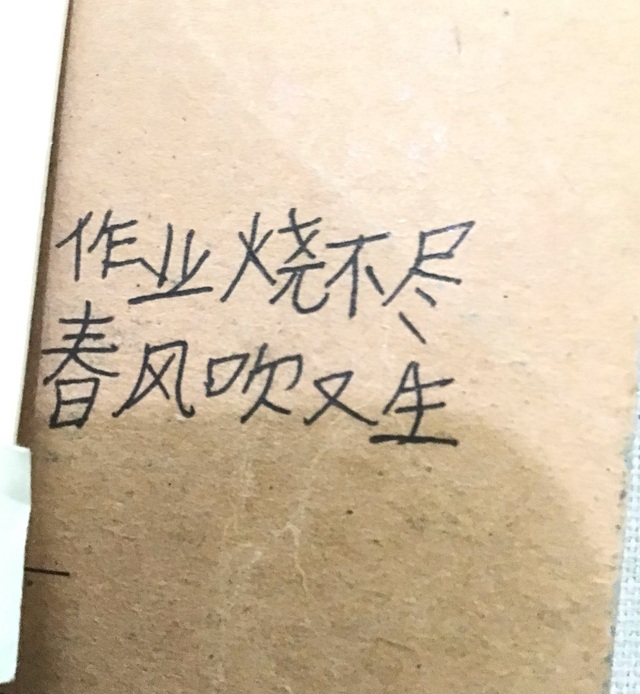 作业烧不尽
春风吹又生